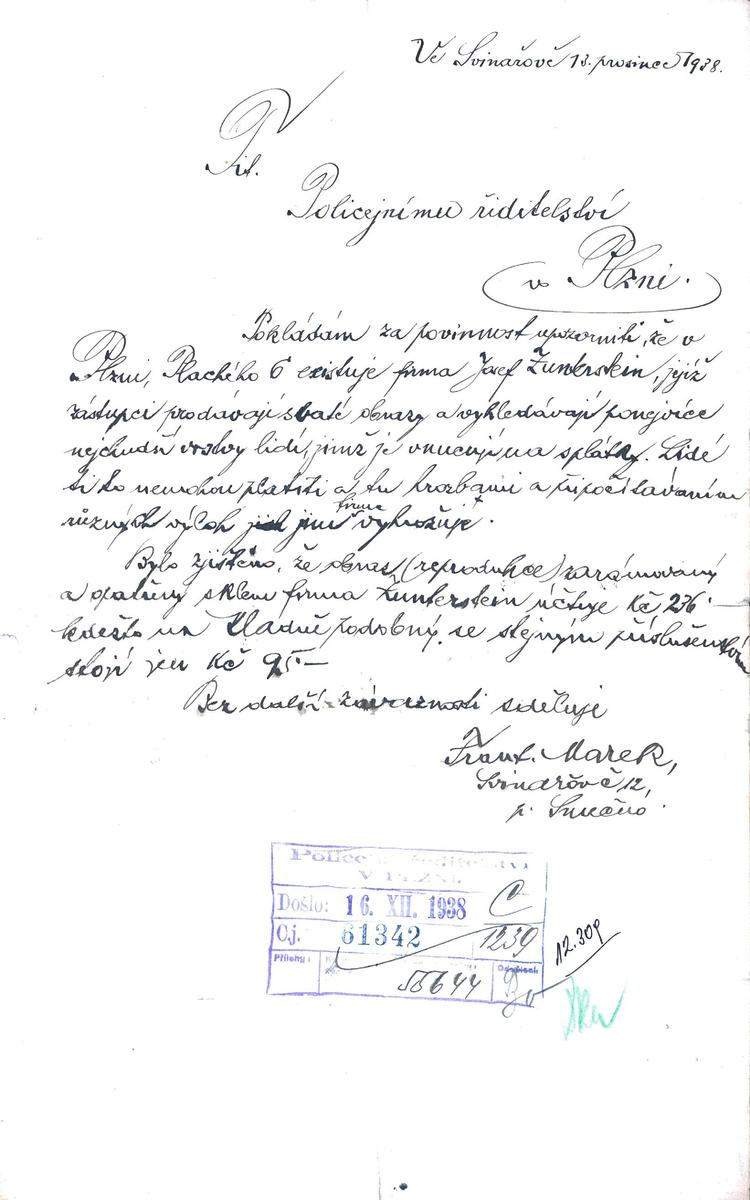 Ve Svinařově 13. prosince 1938.
Tit.
Policejnímu řiditelství
v Plzni.
Pokládám za povinnost upozorniti, že v
Plzni, Plachého 6 existuje firma Josef Žunterstein, jejíž
zástupci prodávají svaté obrazy a vyhledávají ponejvíce
nejchudší vrstvy lidí, jimž je vnucují na splátky. Lidé
ti to nemohou platiti a tu hrozbami a připočítáváním
různých výloh jim firma vyhrožuje.
Bylo zjištěno, že obraz (reprodukce) zarámovaný
a opatřený sklem firma Žunterstein účtuje Kč 276.–
kdežto na Kladně podobný se stejným příslušenstvím
stojí jen Kč 95.–
Bez další závaznosti sděluje
Frant. Marek,
Svinařov č 12,
p. Smečno.
Policejní ředitelství
V PLZNI.
Došlo: 16. XII. 1938 C
Čj. 61342 1239
Přílohy:
55644
12.309